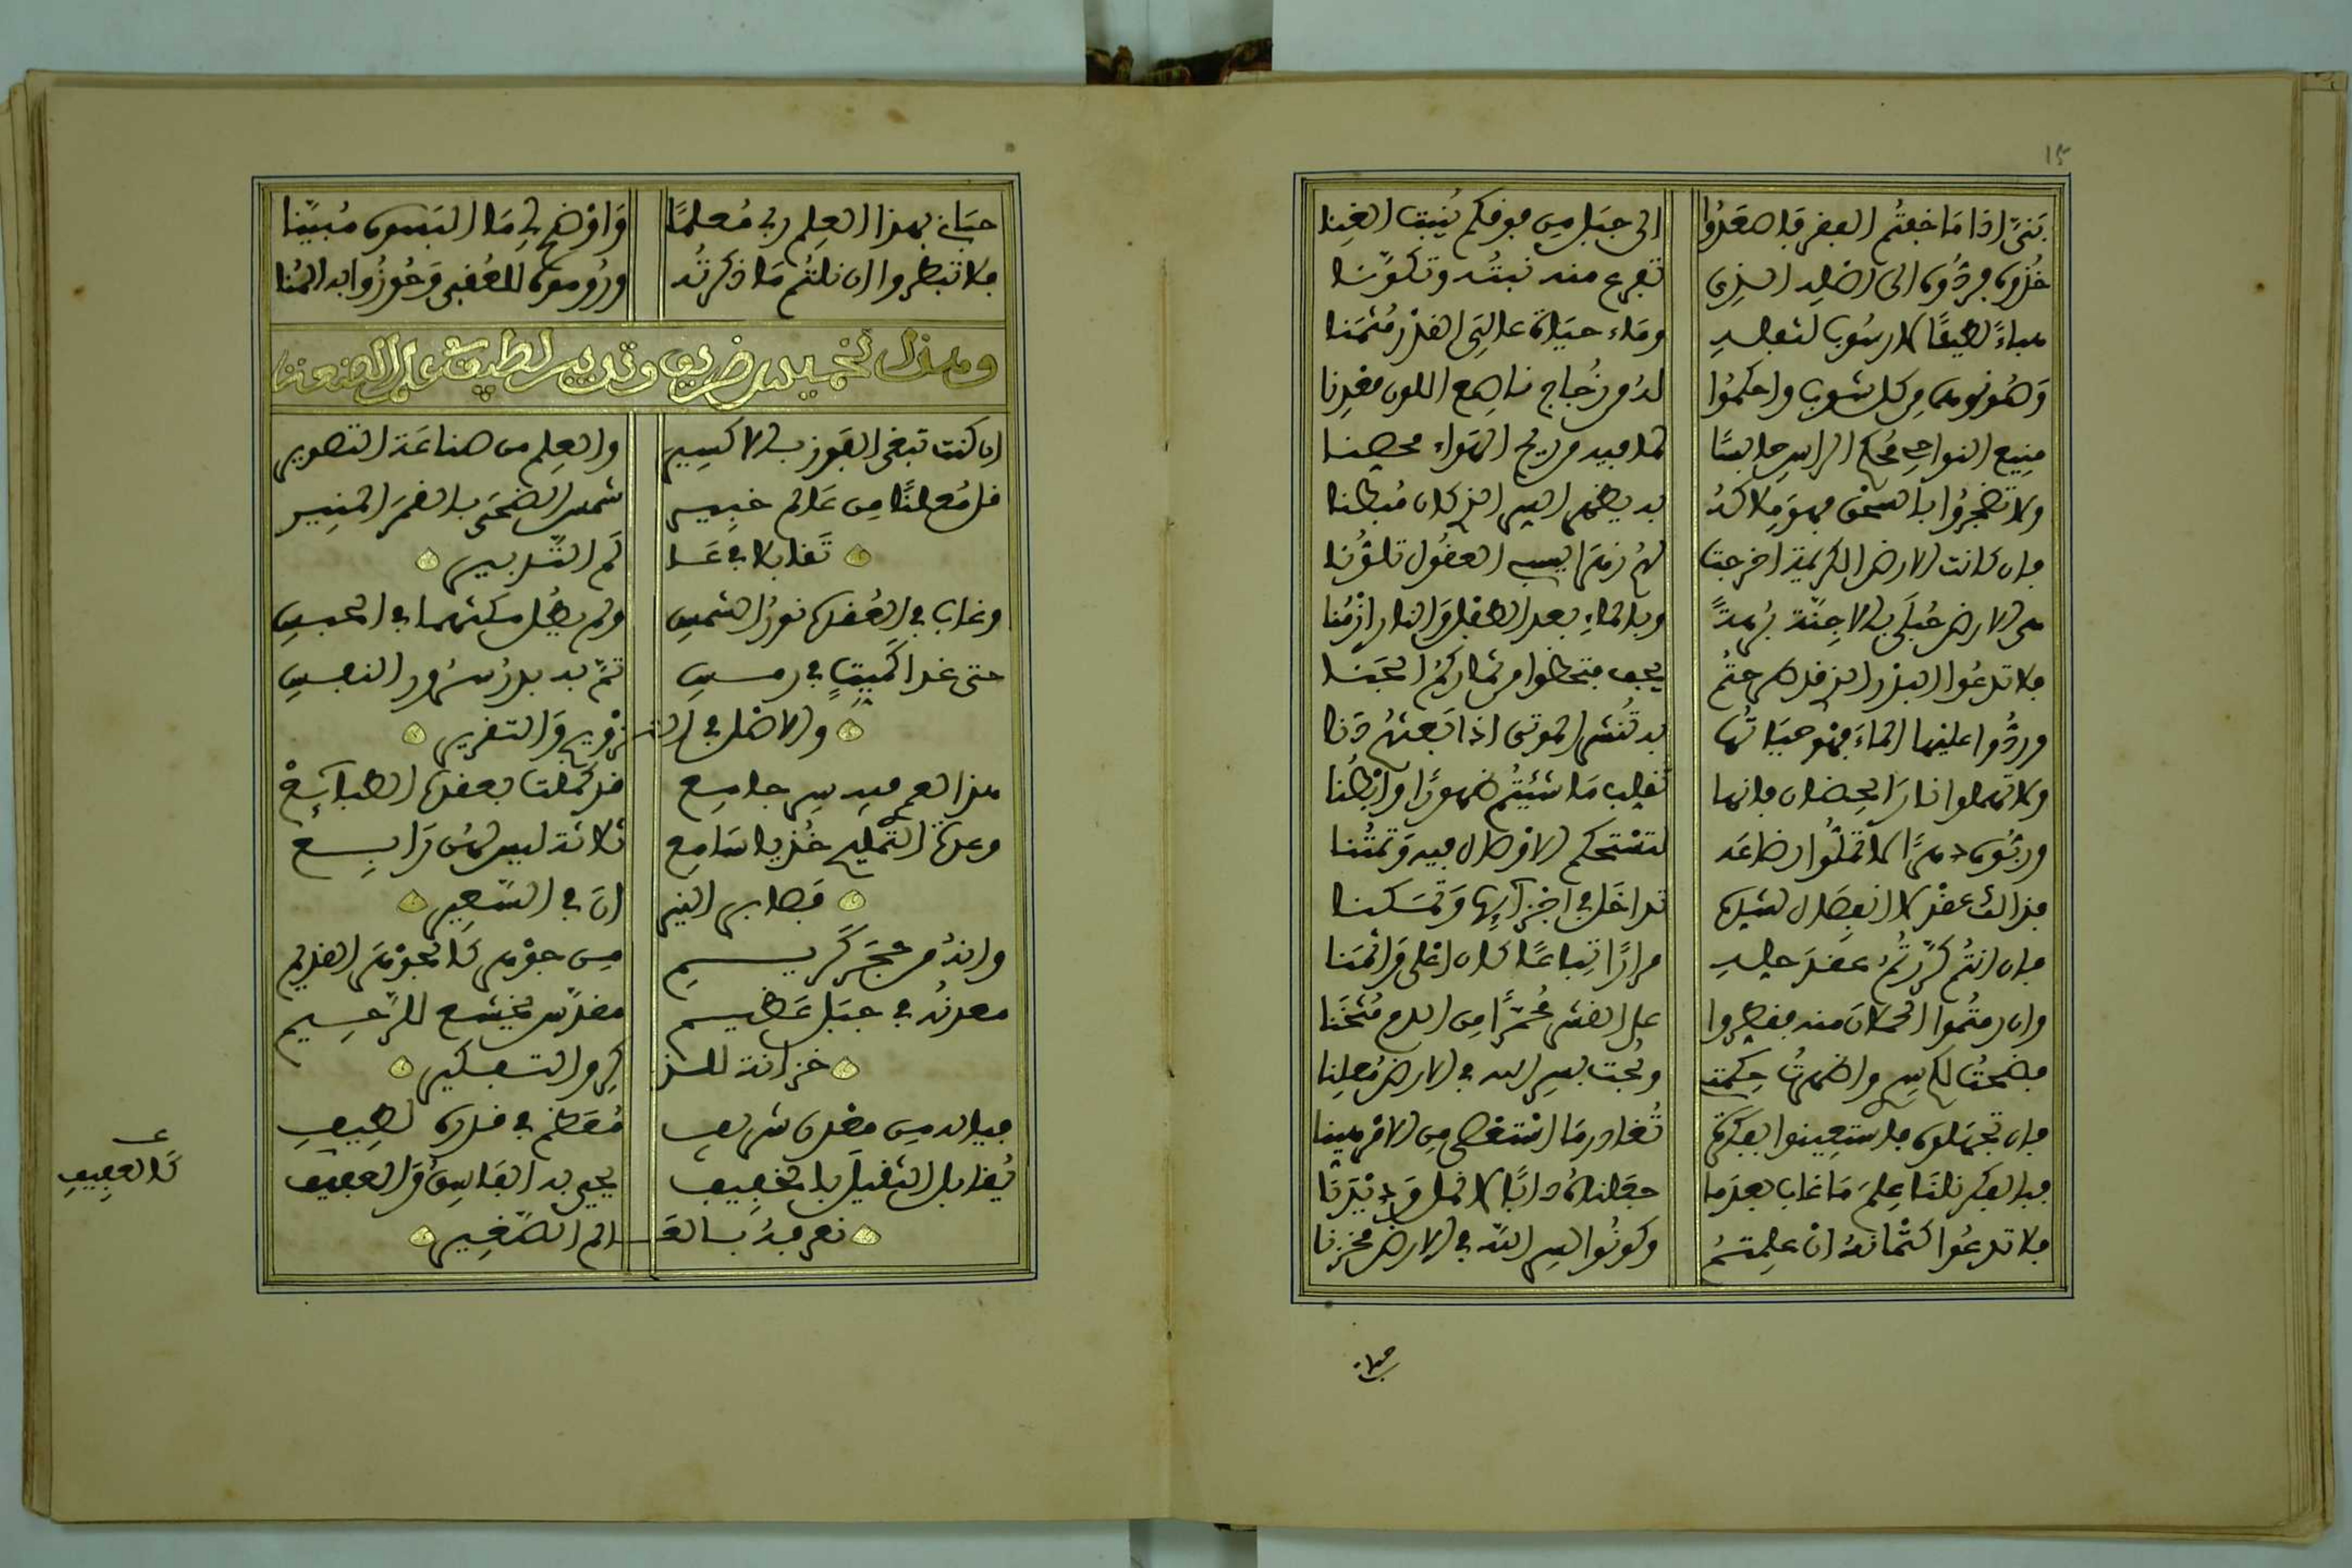 ١٥
بَنىّ اذا ما خفتُم الفقر فاصعدُوا الى جبل من فوقكم يُنبت الغِنا
خذوه فردّوه الى اصله الذى تفرع منه نبتُه وتكوّنا
هباءً لطيفًا لا رسُوب لثفله وماء حياة عالىَ القدر مُثمنا
وصُونوه من كل شوب واحكموُا له من زُجاج ناصع اللون معدنا
منيع النواحى مُحكم الراس حابسًا لما فيه من ريح الهواء محصنا
ولا تضجروُا بالسحق فهو ملاكهُ به يظهر السر الذى كان مُبطنا
فان كانت الارض الكريمة اخرجت لهُ زهَرا يسبى العقُول تلوُّنا
هى الارض حُبلَى بالاجِنّة بُرهةً وبالماءِ بعد الطفل والنار ازمُنا
فلا تدعُوا البذر الذى قد طرحتُم يجف فتخطوا من ثماركمُ الجَنا
وردُّوا عليها الماءَ فهو حيَاتُها به تُنشر الموتى اذا بَعثهُ دَنا
ولا تهملوا نارَ الحِضان فانها تقلب ما شئيتُم ظهورًا وابطُنا
وربّوه دهرًا لا تملّوا رضاعَه لتستحكم الاوصال فيه وتمتُنا
فذالك عقدٌ لا انفصَال لشيئ تداخَل فى اجزآيها وتمسَكنا
فان انتمُ كرّرتمُ عقدَ حله مرارًا تِباعًا كان اعلى واثمَنا
وان رمتُموا الحملانَ منه فقطروا على القشر مُحمرًّا من الدم مُثخَنا
فضحتُ لكم سرى واظهرتُ حِكمتى وبُحت بسر الله فى الارض مُعلِنا
فان تجهَلوه فاستعينوا بفكرة تُغادر ما استقصى من الامر هينا
فبالفكر نلنَا علمَ ما غاب بعدَما جعلناهُ دابًا لا نمل وَديْدَنَا
فلا تدعُوا كتمَانهُ ان علمتمُ وكونُوا لسر الله فى الارض مخزنا
حبانى
حبَانى بهذا العِلم ربى مُعلمًا وَاوْضح لِى مَا التبسوه مُبيّنا
فلا تبطروا ان نلتُم ما ذكرتُه ورُوموه للعُقبى وَحُوزُوا به المُنا
وهذا تخميس ظريف وتدبير لطيف على الصنعتنا
ان كنت تبغى الفوز بالاكسير والعلم من صناعَة التصوير
خذ مُعلنًا من عَالم خبير شمس الضحَى بالقمَر المنير
تقابلا فى عَالَم التدبير
وغاب فى العُقدة نورُ الشمسِ ولم يطُل مكثهما فى الحبسِ
حتى غدا كمَيتٍ فى رمسِ تمّ به بدرُ سُرور النفسِ
والاصل فى التزويج وَالتقرير
هذا لعمرى فيه سر جامع قد كملت بعقده الطبآئعْ
وعدة التمليح خُذ يا سَامع ثلاثة ليس لهنّ رَابعْ
قطابن النيران فى السّعير
وانهُ من حجَر كَريم من جوهر كالجوهَر القديم
معدنُه فى جبَل عَظيم مقدّس يخشع للرّحيم
خزانة للذكر والتفكير
فيا له من معدن شريف مُعَظم فى قدره لطيف
يُقابل الثقيلَ بالخفيف يحيى به الفاسِقُ وَالعفيف
نعرفهُ بالعَالم الصّغير
كالعفيف